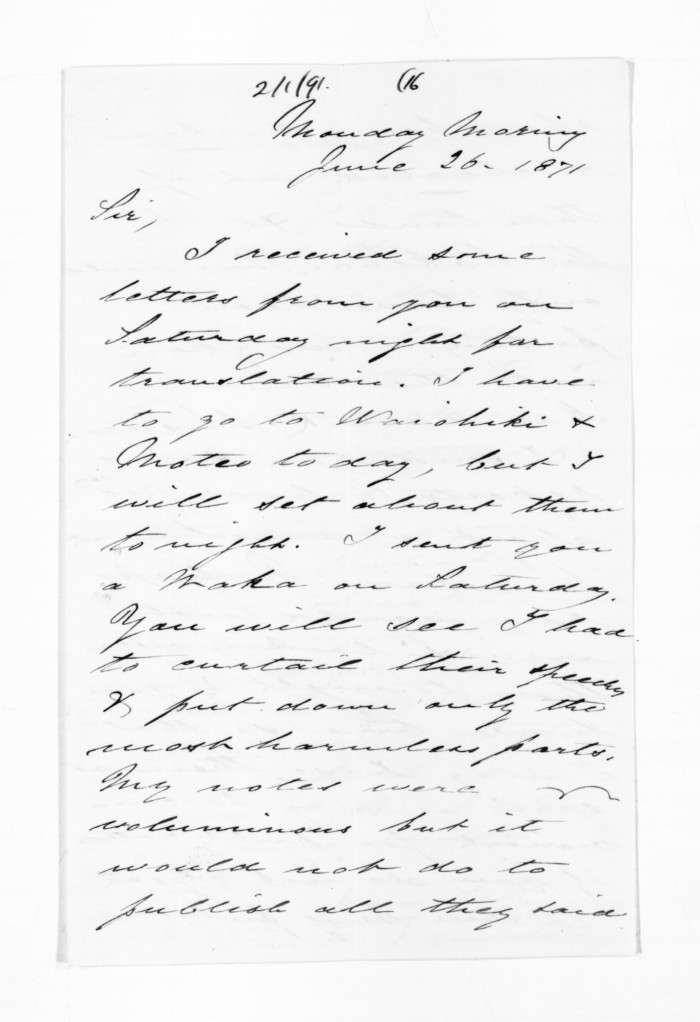 2/1/91. (16
Monday Moring
June 26 - 1871
Sir,
I received some
letters from you on
Saturday night for
translation. I have
to go to Waiohiki &
Moteo to day, but I
will set about them
to night. I sent you
a Waka on Saturday.
You will see I had
to curtail their speeches
& put down only the
most harmless parts.
My notes were
voluminous but it
would not do to
publish all they said